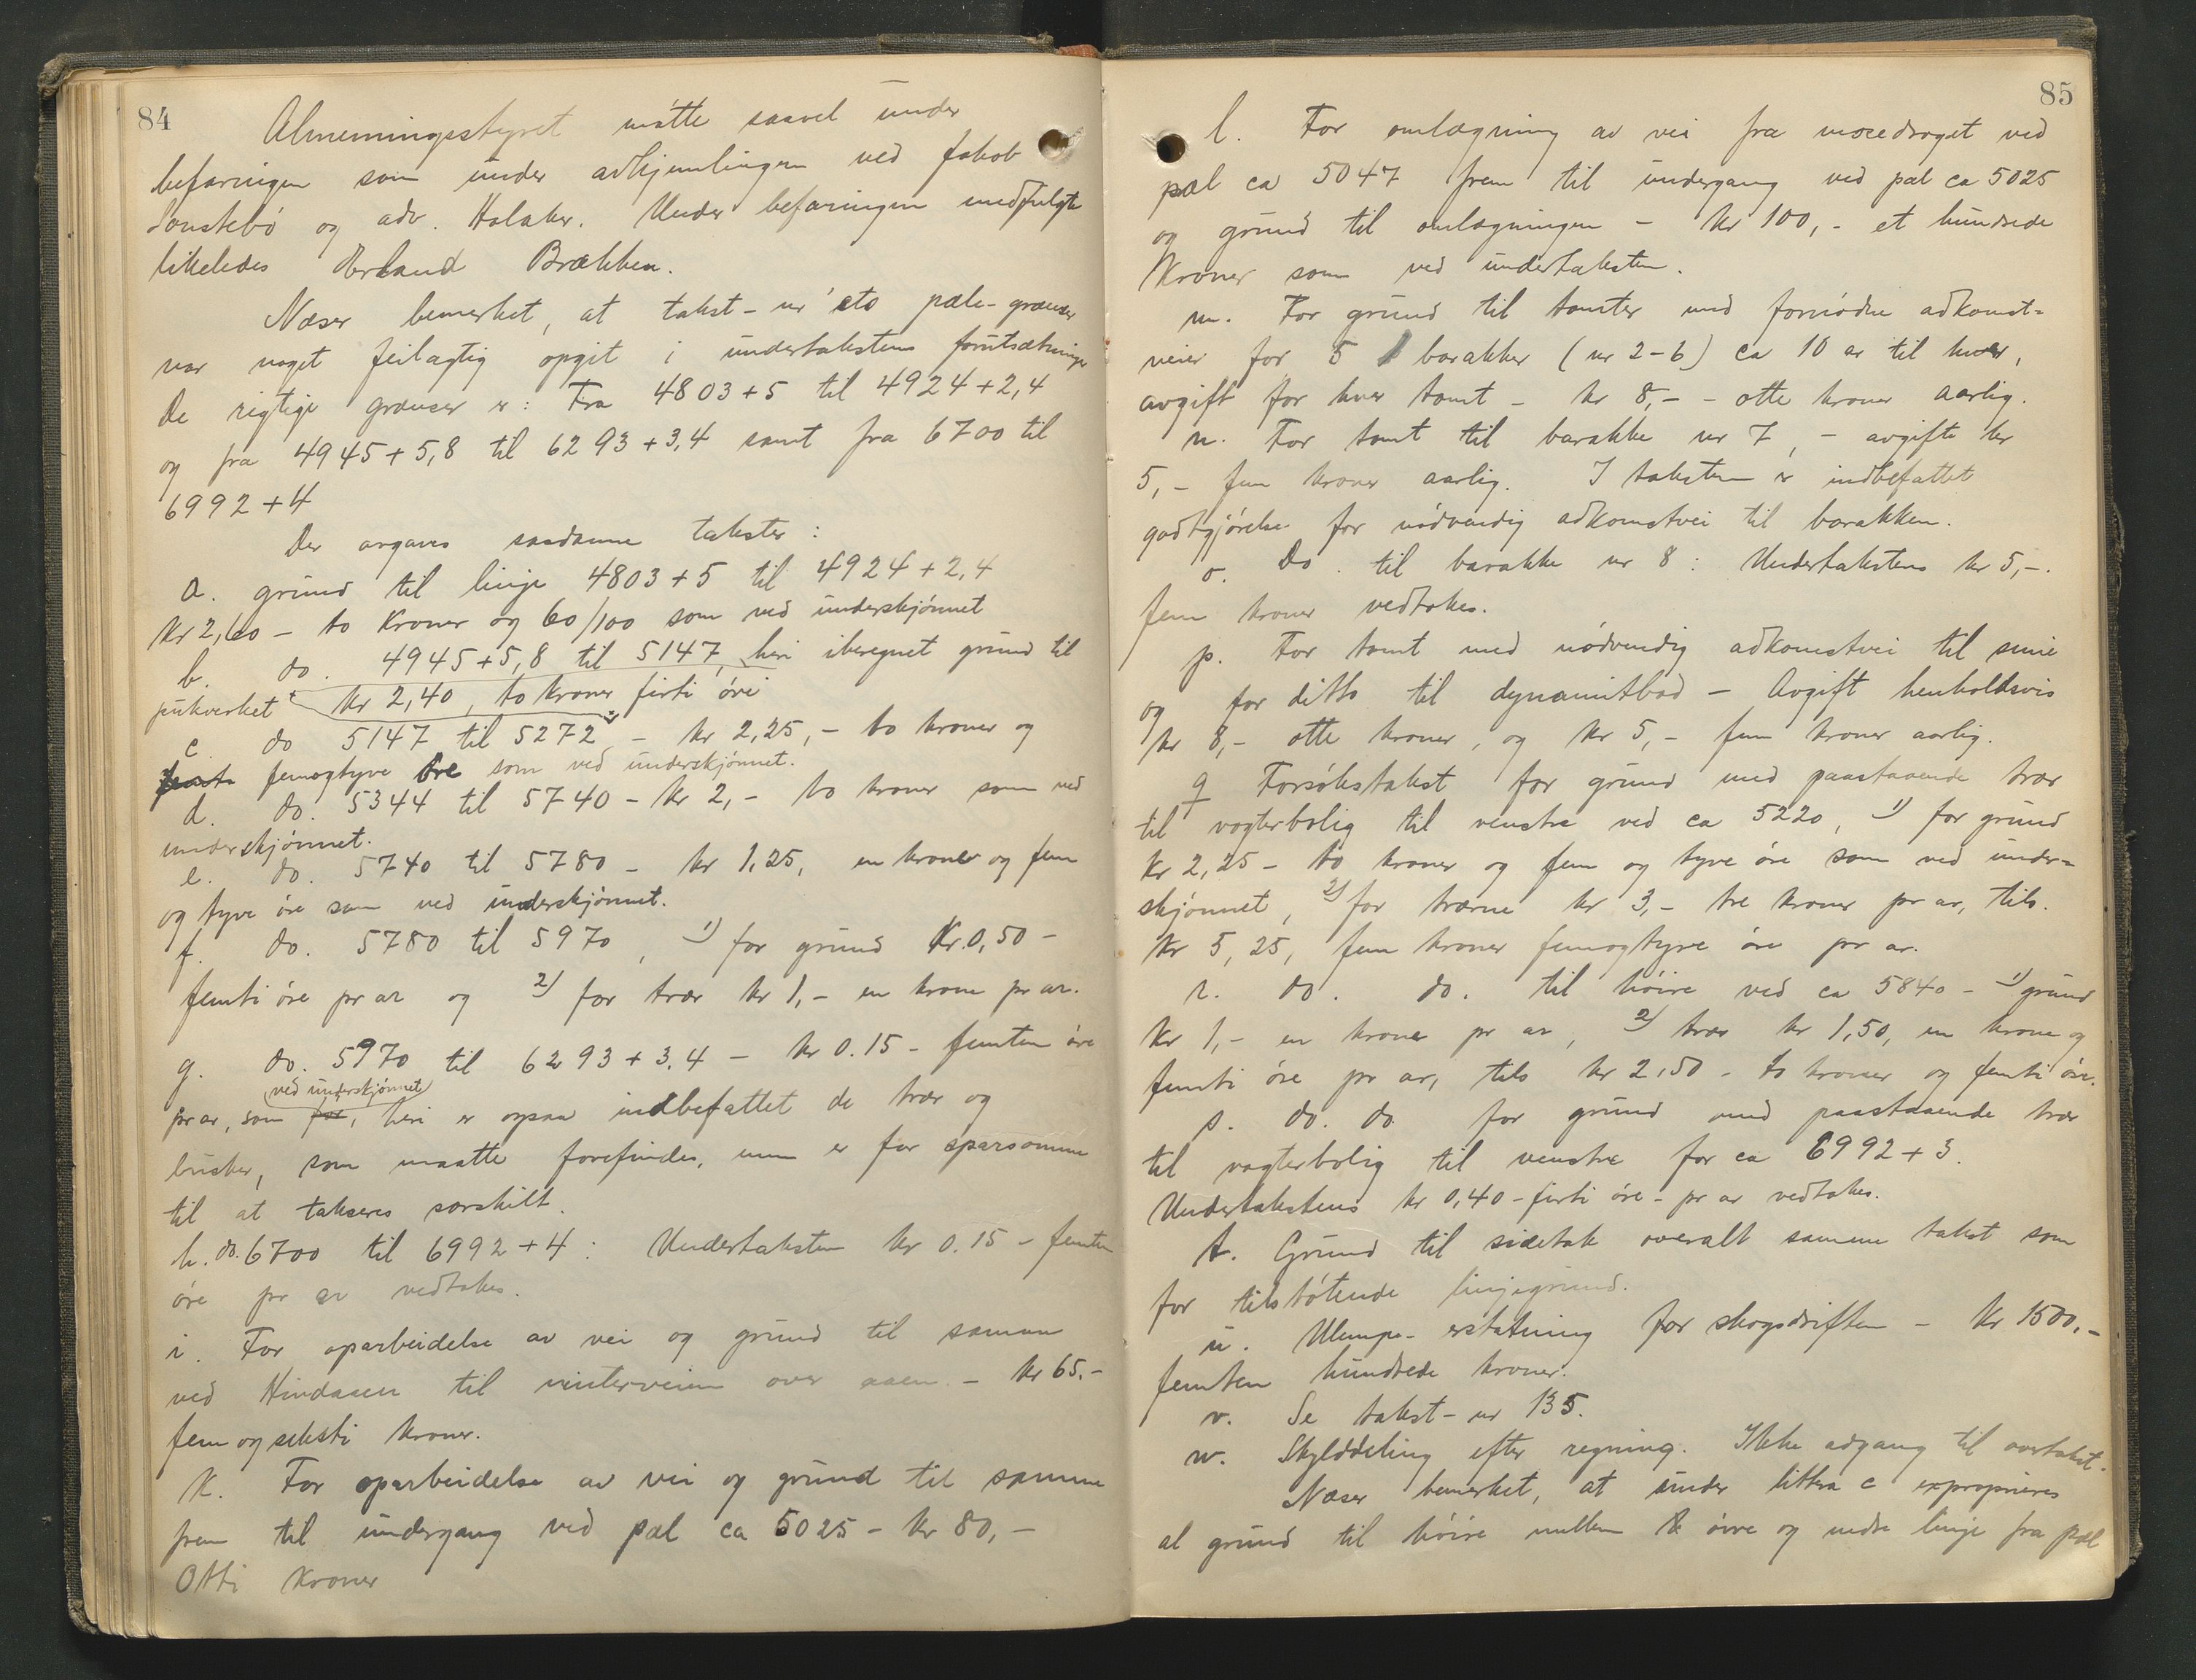 84
Almenningsstyret mötte saavel under
befaringen som under avhjemlingen ved Jakob
Sönstebö og adv. Holaker. Under befaringen medfulgte
likeledes Erland Brækken.
Næser bemerket, at takst-nr'ets pæle-grænser
var noget feilagtig opgit i undertakstens forutsætninger
De rigtige grænser er: Fra 4803+5 til 4924+2,4
og fra 4945+5,8 til 6293+3,4 samt fra 6700 til
6992+4
Der avgaves saadanne takster:
a. grund til linje 4803+5 til 4924+2,4
Kr 2,60 - to Kroner og 60/100 som ved underskjönnet
b. do. 4945+5,8 til 5147, heri iberegnet grund til
pukverket kr 2,40, to kroner firti öre
c do 5147 til 5272 - kr 2,25,- to kroner og
femogtyve öre som ved underskjönnet.
d. do. 5344 til 5740 - kr 2,- to kroner som ved
underskjönnet.
e. do. 5740 til 5780 - kr 1,25, en krone og fem
og tyve öre som ved underskjönnet.
f. do. 5780 til 5970, 1) for grund Kr. 0,50 -
femti öre pr ar og 2) for trær kr 1,- en krone pr ar.
g. do. 5970 til 6293+3,4 - kr 0.15 - femten öre
ved underskjönnet
pr ar, som för, heri er ogsaa indbefattet de trær og
busker, som maatte forefindes, men er for sparsomme
til at takseres særskilt.
h. do. 6700 til 6992+4: Undertaksten kr 0.15 - femten
öre pr ar vedtakes.
i. For oparbeidelse av vei og grund til samme
ved Hindaaen til vinterveien over aaen - kr 65.-
fem og seksti kroner.
k. For oparbeidelse av vei og grund til samme
frem til undergang ved pæl ca 5025 - kr 80,-
Otti kroner
85
l. For omlægning av vei fra mosedraget ved
pæl ca 5047 frem til undergang ved pæl ca 5025
og grund til omlægningen - kr 100,- et hundrede
Kroner som ved undertaksten.
m. For grund til tomter med fornödne adkomst=
veier for 5 barakker (nr 2-6) ca 10 ar til hver,
avgift for hver tomt - kr 8,- - otte kroner aarlig.
n. For tomt til barakke nr 7, - avgifte kr
5,- fem kroner aarlig. I taksten er indbefattet
godtgjörelse for nödvendig adkomstvei til barakken.
o. Do. til barakke nr 8: Undertakstens kr 5,-.
fem kroner vedtakes.
p. For tomt med nödvendig adkomstvei til smie
og for ditto til dynamitbod - Avgift henholdsvis
kr 8,- otte kroner, og kr 5,- fem kroner aarlig.
q Forsökstakst for grund med paastaaende trær
til vogterbolig til venstre ved ca 5220, 1) for grund
kr 2,25 - to kroner og fem og tyve öre som ved under=
skjönnet, 2) for trærne kr 3,- tre kroner pr ar, tils.
kr 5,25, fem kroner femogtyve öre pr ar.
r. do. do. til höire ved ca 5840 - 1) grund
Kr 1,- en krone pr ar, 2) trær kr 1,50, en krone og
femti öre pr ar, tils kr 2,50 - to kroner og femti öre.
s. do. do. for grund med paastaaende trær
til vogterbolig til venstre for ca 6992+3.
Undertakstens kr 0,40 - firti öre - pr ar vedtakes.
t. Grund til sidetak overalt samme takst som
for tilstötende linjegrund.
u. Ulempe-erstatning for skogsdriften - kr 1500,-
femten hundrede kroner.
v. Se takst-nr 135.
w. Skylddeling efter regning. Ikke adgang til overtakst.
Næser bemerket, at under littra c exproprieres
al grund til höire mellem övre og nedre linje fra pæl